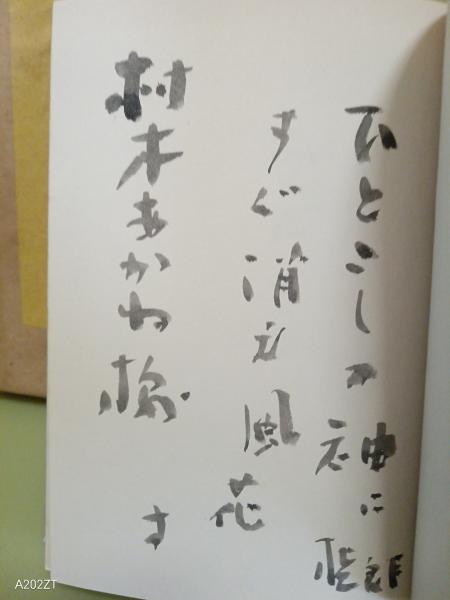 ひとこしの袖に
すぐ消え風花
桂郎
村木あかね様
A202ZT